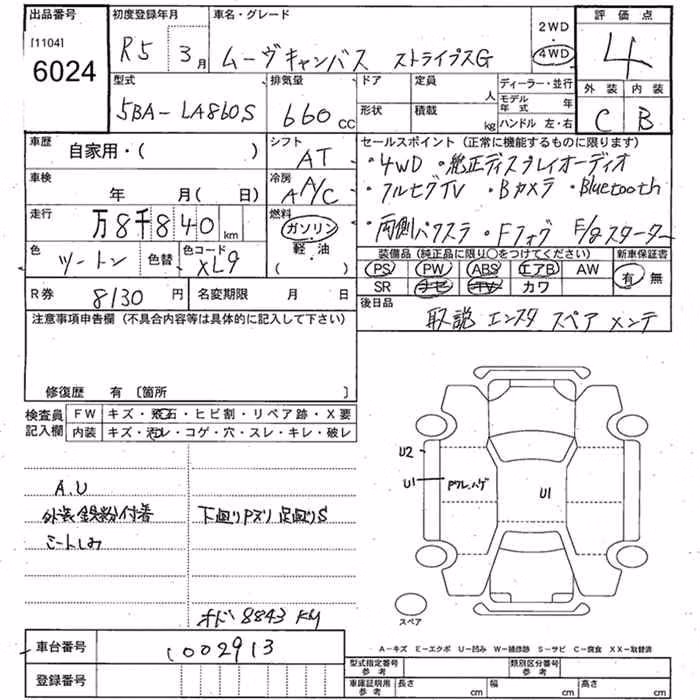 出品番号 初度登録年月 車名・グレード 2WD 評価点
[1104] R5 3月 ムーヴキャンバス ストライプスG 4WD 4
6024
型式 排気量 ドア 定員 ディーラー・並行 外装 内装
人 モデル年式 年
5BA-LA860S 660cc 形状 積載 kg ハンドル 左・右 C B
車歴 自家用・( ) シフト AT セールスポイント (正常に機能するものに限ります)
・4WD ・純正ディスプレイオーディオ
車検 年 月( 日) 冷房 AA/C ・フルセグTV ・Bカメラ ・Bluetooth
走行 万8千840km 燃料 ガソリン ・両側パワスラ ・Fフォグ E/gスターター
色 ツートン 色替 色コード XL9 軽・油 ( )
装備品 (純正品に限り○をつけてください) 新車保証書
PS PW ABS エアB AW 有 無
SR ナビ TV カワ
R券 8130円 名変期限 月 日 後日品
取説 エンスタ スペア メンテ
注意事項申告欄 (不具合内容等は具体的に記入して下さい)
修復歴 有 [箇所 ]
検査員記入欄 FW キズ・飛石・ヒビ割・リペア跡・X要
内装 キズ・汚レ・コゲ・穴・スレ・キレ・破レ
U2
U1 Pワレ、ハゲ U1
A.U
外装鉄粉付着 下廻りPズリ 足廻りS
シートしみ
オド 8843 KM
スペア
A-キズ E-エクボ U-凹み W-補修跡 S-サビ C-腐食 XX-取替済
車台番号 1002913
型式指定番号 参考 類別区分番号 参考
登録番号 車庫証明用 参考 長さ cm 幅 cm 高さ cm